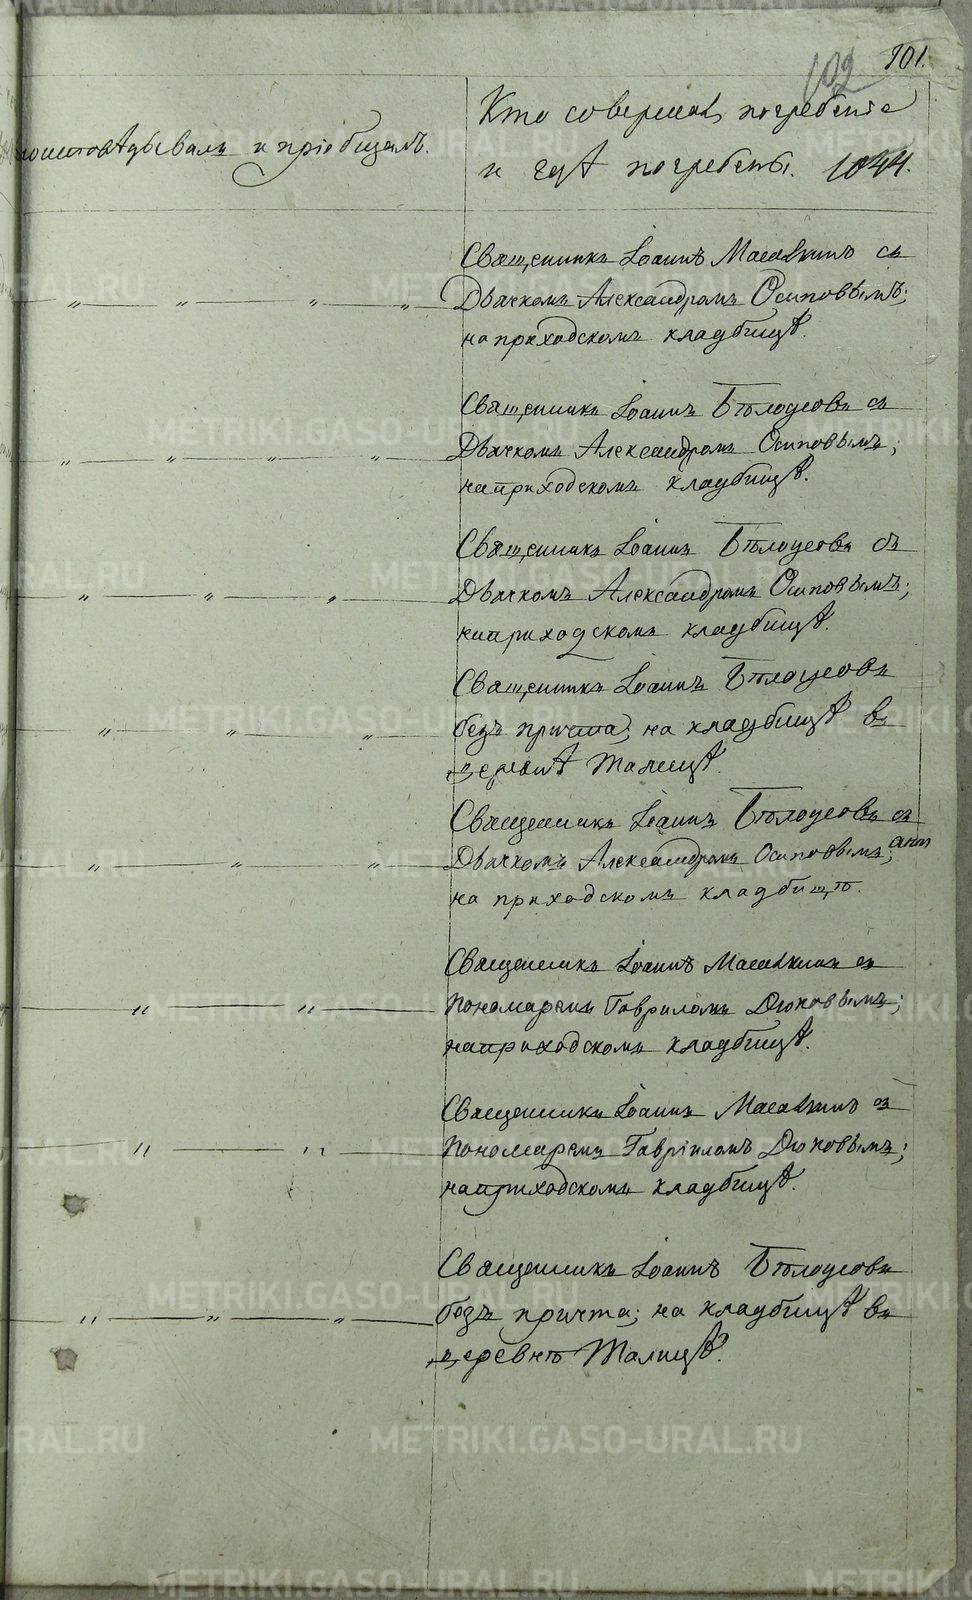 102 101.
Кто совершалъ погребеніе
исповѣдывалъ и пріобщалъ.
и гдѣ погребены. 1044.
Священникъ Іоаннъ Масалкинъ съ
Дьячкомъ Александромъ Осиповымъ;
на приходскомъ кладбищѣ.
Священникъ Іоаннъ Бѣлоусовъ съ
Дьячкомъ Александромъ Осиповымъ;
на приходскомъ кладбищѣ.
Священникъ Іоаннъ Бѣлоусовъ съ
Дьячкомъ Александромъ Осиповымъ;
на приходскомъ кладбищѣ.
Священникъ Іоаннъ Бѣлоусовъ
безъ причта; на кладбищѣ въ
деревнѣ Талицѣ.
Священникъ Іоаннъ Бѣлоусовъ съ
Дьячкомъ Александромъ Осиповымъ;
на приходскомъ кладбищѣ.
Священникъ Іоаннъ Масалкинъ съ
Пономаремъ Гавриломъ Дюковымъ;
на приходскомъ кладбищѣ.
Священникъ Іоаннъ Масалкинъ съ
Пономаремъ Гавріиломъ Дюковымъ;
на приходскомъ кладбищѣ.
Священникъ Іоаннъ Бѣлоусовъ
безъ причта; на кладбищѣ въ
деревнѣ Талицѣ.
METRIKI.GASO-URAL.RU